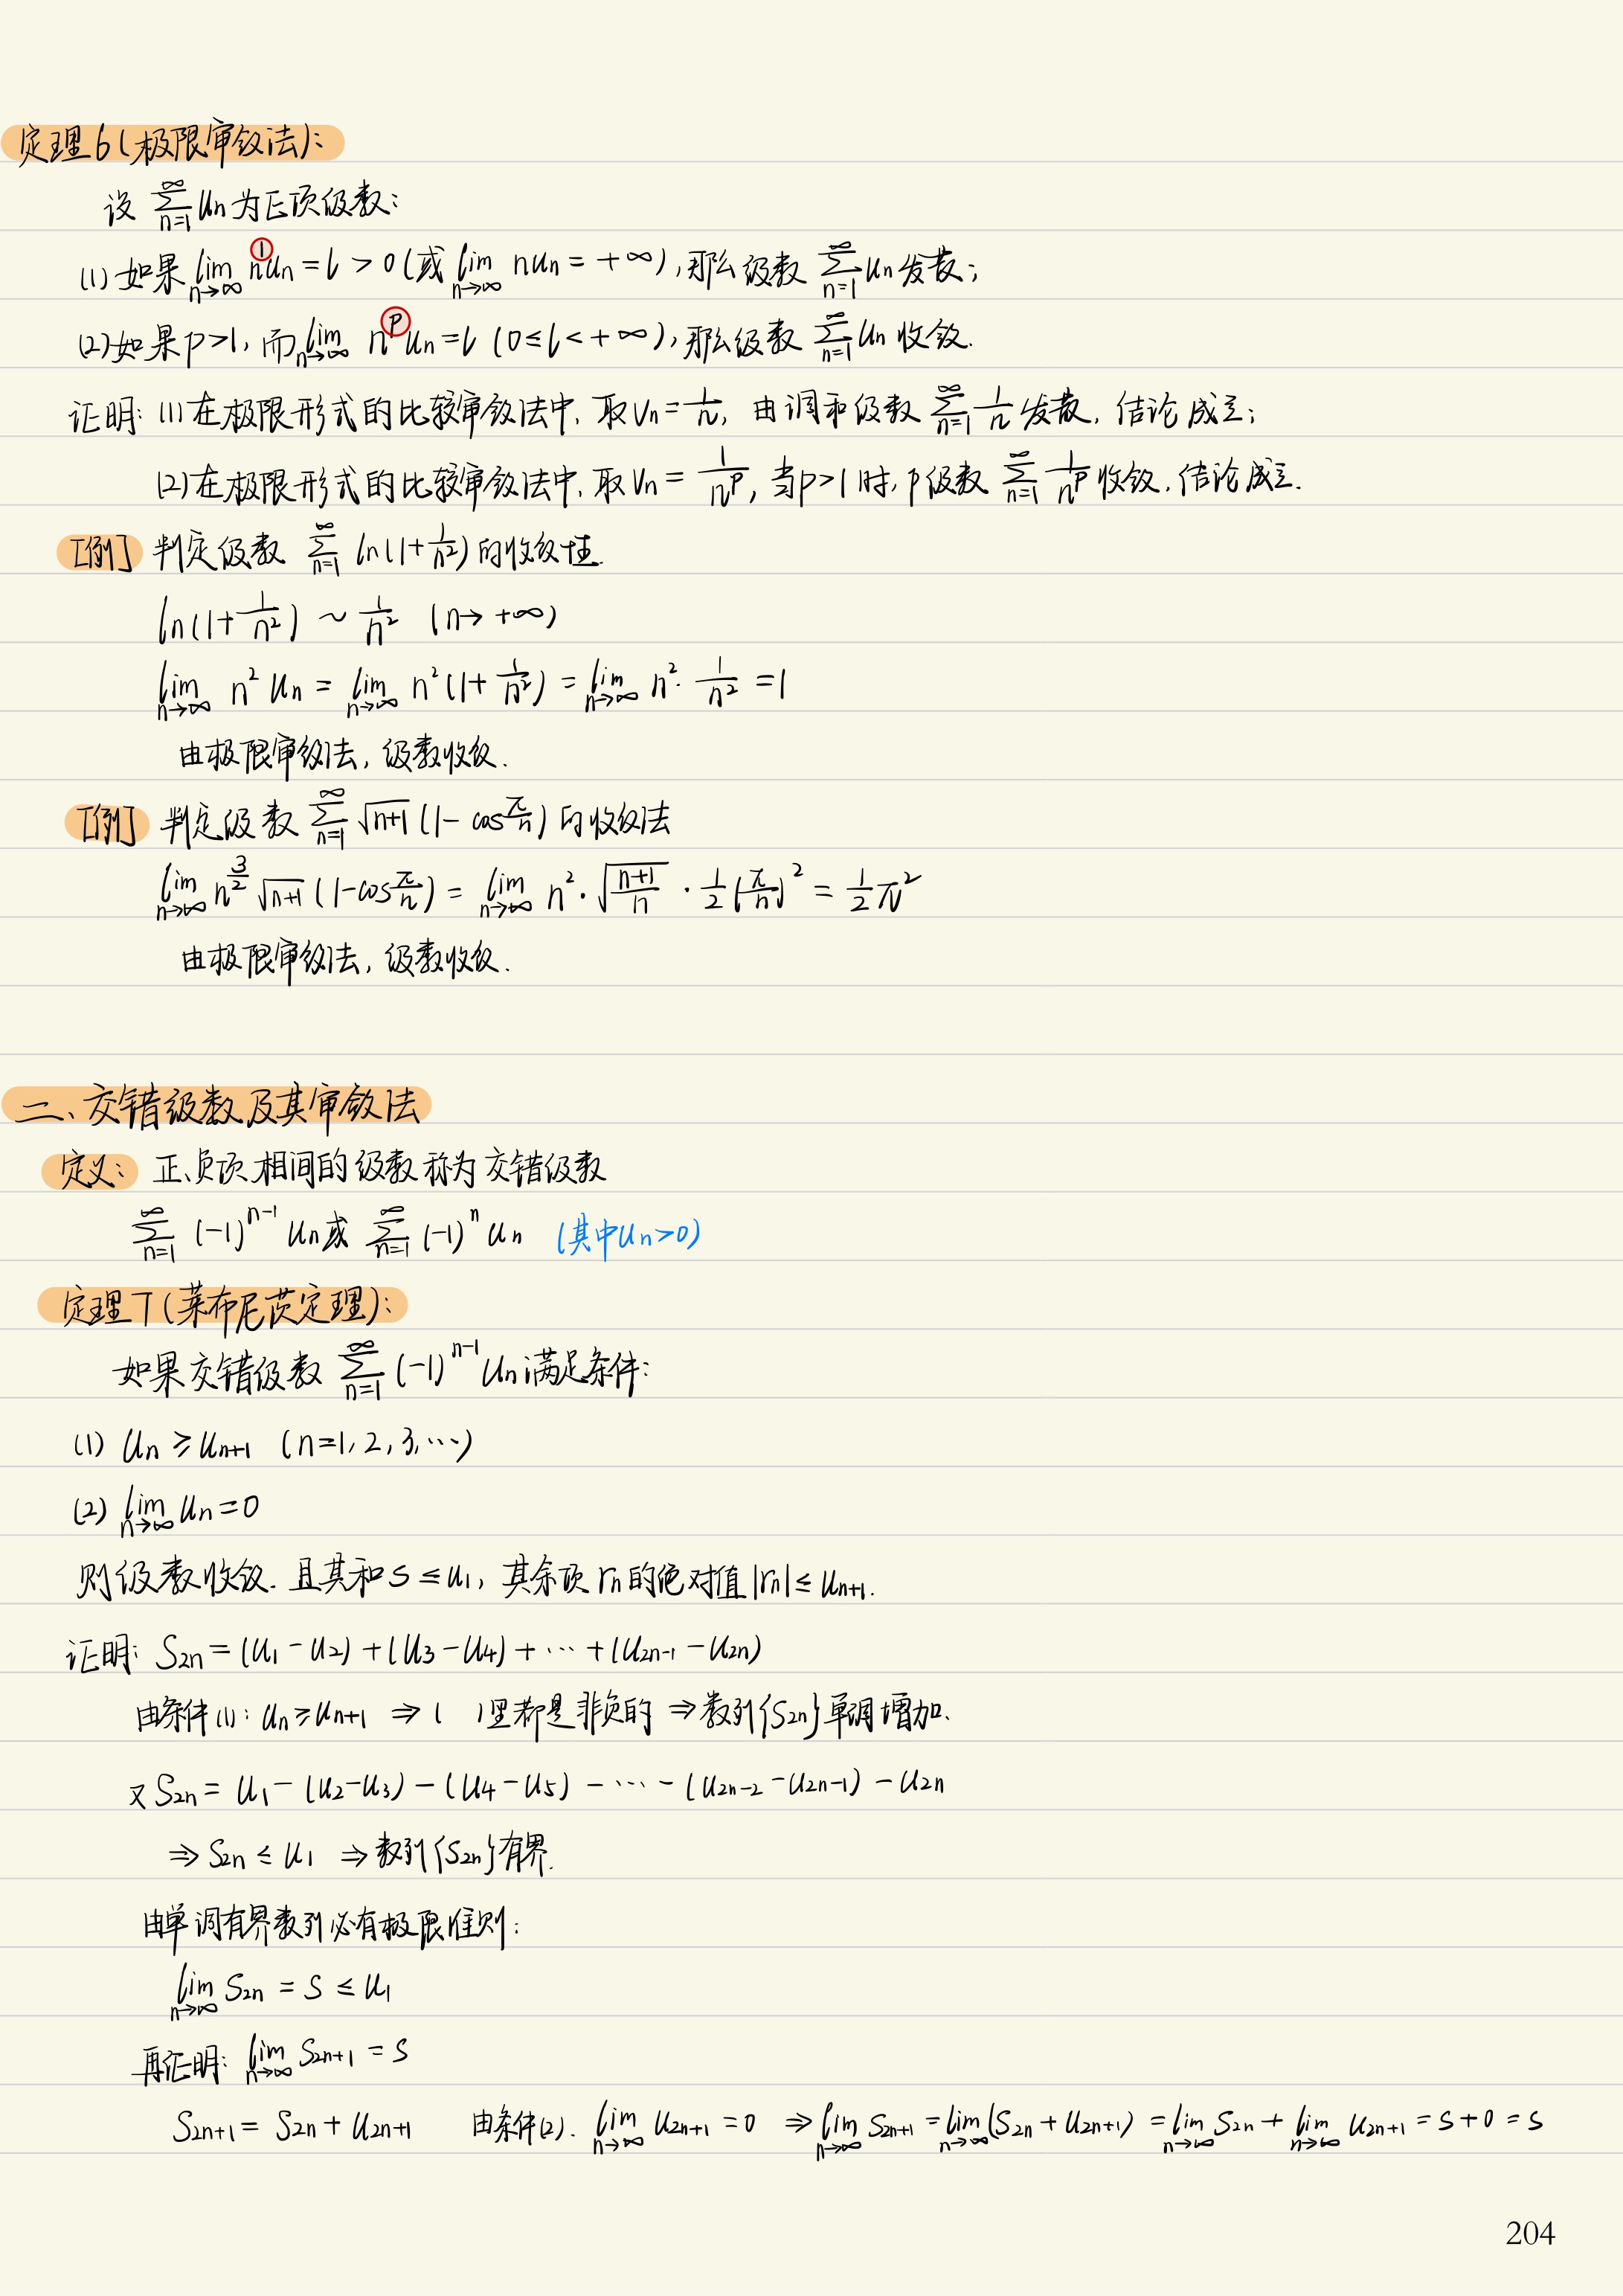 定理6(极限审敛法):
设 $\sum_{n=1}^{\infty} u_n$ 为正项级数:
(1) 如果 $\lim_{n\to\infty} n^{①} u_n = l > 0$ (或 $\lim_{n\to\infty} nu_n = +\infty$), 那么级数 $\sum_{n=1}^{\infty} u_n$ 发散;
(2) 如果 $p>1$, 而 $\lim_{n\to\infty} n^{p} u_n = l$ $(0 \le l < +\infty)$, 那么级数 $\sum_{n=1}^{\infty} u_n$ 收敛.
证明: (1) 在极限形式的比较审敛法中, 取 $v_n = \frac{1}{n}$, 由调和级数 $\sum_{n=1}^{\infty} \frac{1}{n}$ 发散, 结论成立;
(2) 在极限形式的比较审敛法中, 取 $v_n = \frac{1}{n^p}$, 当 $p>1$ 时, p级数 $\sum_{n=1}^{\infty} \frac{1}{n^p}$ 收敛, 结论成立.
[例] 判定级数 $\sum_{n=1}^{\infty} \ln(1+\frac{1}{n^2})$ 的收敛性.
$\ln(1+\frac{1}{n^2}) \sim \frac{1}{n^2}$ $(n \to +\infty)$
$\lim_{n\to\infty} n^2 u_n = \lim_{n\to\infty} n^2(1+\frac{1}{n^2}) = \lim_{n\to\infty} n^2 \cdot \frac{1}{n^2} = 1$
由极限审敛法, 级数收敛.
[例] 判定级数 $\sum_{n=1}^{\infty} \sqrt{n+1}(1-\cos\frac{\pi}{n})$ 的收敛法
$\lim_{n\to\infty} n^{\frac{3}{2}} \sqrt{n+1}(1-\cos\frac{\pi}{n}) = \lim_{n\to\infty} n^2 \cdot \sqrt{\frac{n+1}{n}} \cdot \frac{1}{2}(\frac{\pi}{n})^2 = \frac{1}{2}\pi^2$
由极限审敛法, 级数收敛.
二、交错级数及其审敛法
定义: 正、负项相间的级数称为交错级数
$\sum_{n=1}^{\infty} (-1)^{n-1} u_n$ 或 $\sum_{n=1}^{\infty} (-1)^n u_n$ (其中 $u_n>0$)
定理7(莱布尼茨定理):
如果交错级数 $\sum_{n=1}^{\infty} (-1)^{n-1} u_n$ 满足条件:
(1) $u_n \ge u_{n+1}$ $(n=1,2,3,\cdots)$
(2) $\lim_{n\to\infty} u_n = 0$
则级数收敛. 且其和 $s \le u_1$, 其余项 $r_n$ 的绝对值 $|r_n| \le u_{n+1}$.
证明: $S_{2n} = (u_1-u_2)+(u_3-u_4)+\cdots+(u_{2n-1}-u_{2n})$
由条件(1): $u_n \ge u_{n+1}$ ⇒ ( )里都是非负的 ⇒ 数列 $\{S_{2n}\}$ 单调增加.
又 $S_{2n} = u_1-(u_2-u_3)-(u_4-u_5)-\cdots-(u_{2n-2}-u_{2n-1})-u_{2n}$
⇒ $S_{2n} \le u_1$ ⇒ 数列 $\{S_{2n}\}$ 有界.
由单调有界数列必有极限准则:
$\lim_{n\to\infty} S_{2n} = S \le u_1$
再证明: $\lim_{n\to\infty} S_{2n+1} = S$
$S_{2n+1} = S_{2n}+u_{2n+1}$ 由条件(2). $\lim_{n\to\infty} u_{2n+1} = 0$ ⇒ $\lim_{n\to\infty} S_{2n+1} = \lim_{n\to\infty}(S_{2n}+u_{2n+1}) = \lim_{n\to\infty} S_{2n} + \lim_{n\to\infty} u_{2n+1} = S+0 = S$
204